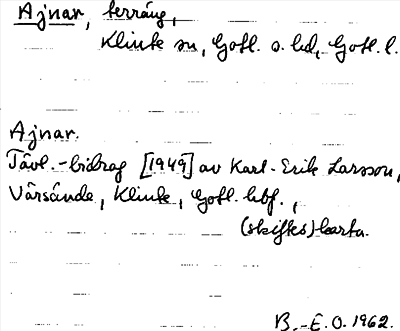 Ajnar, terräng,
Klinte sn, Gotl. s. hd, Gotl. l.
Ajnar.
Tävl.-bidrag [1949] av Karl-Erik Larsson,
Värsände, Klinte, Gotl. hbf.,
(skiftes)karta.
B.-E.O. 1962.